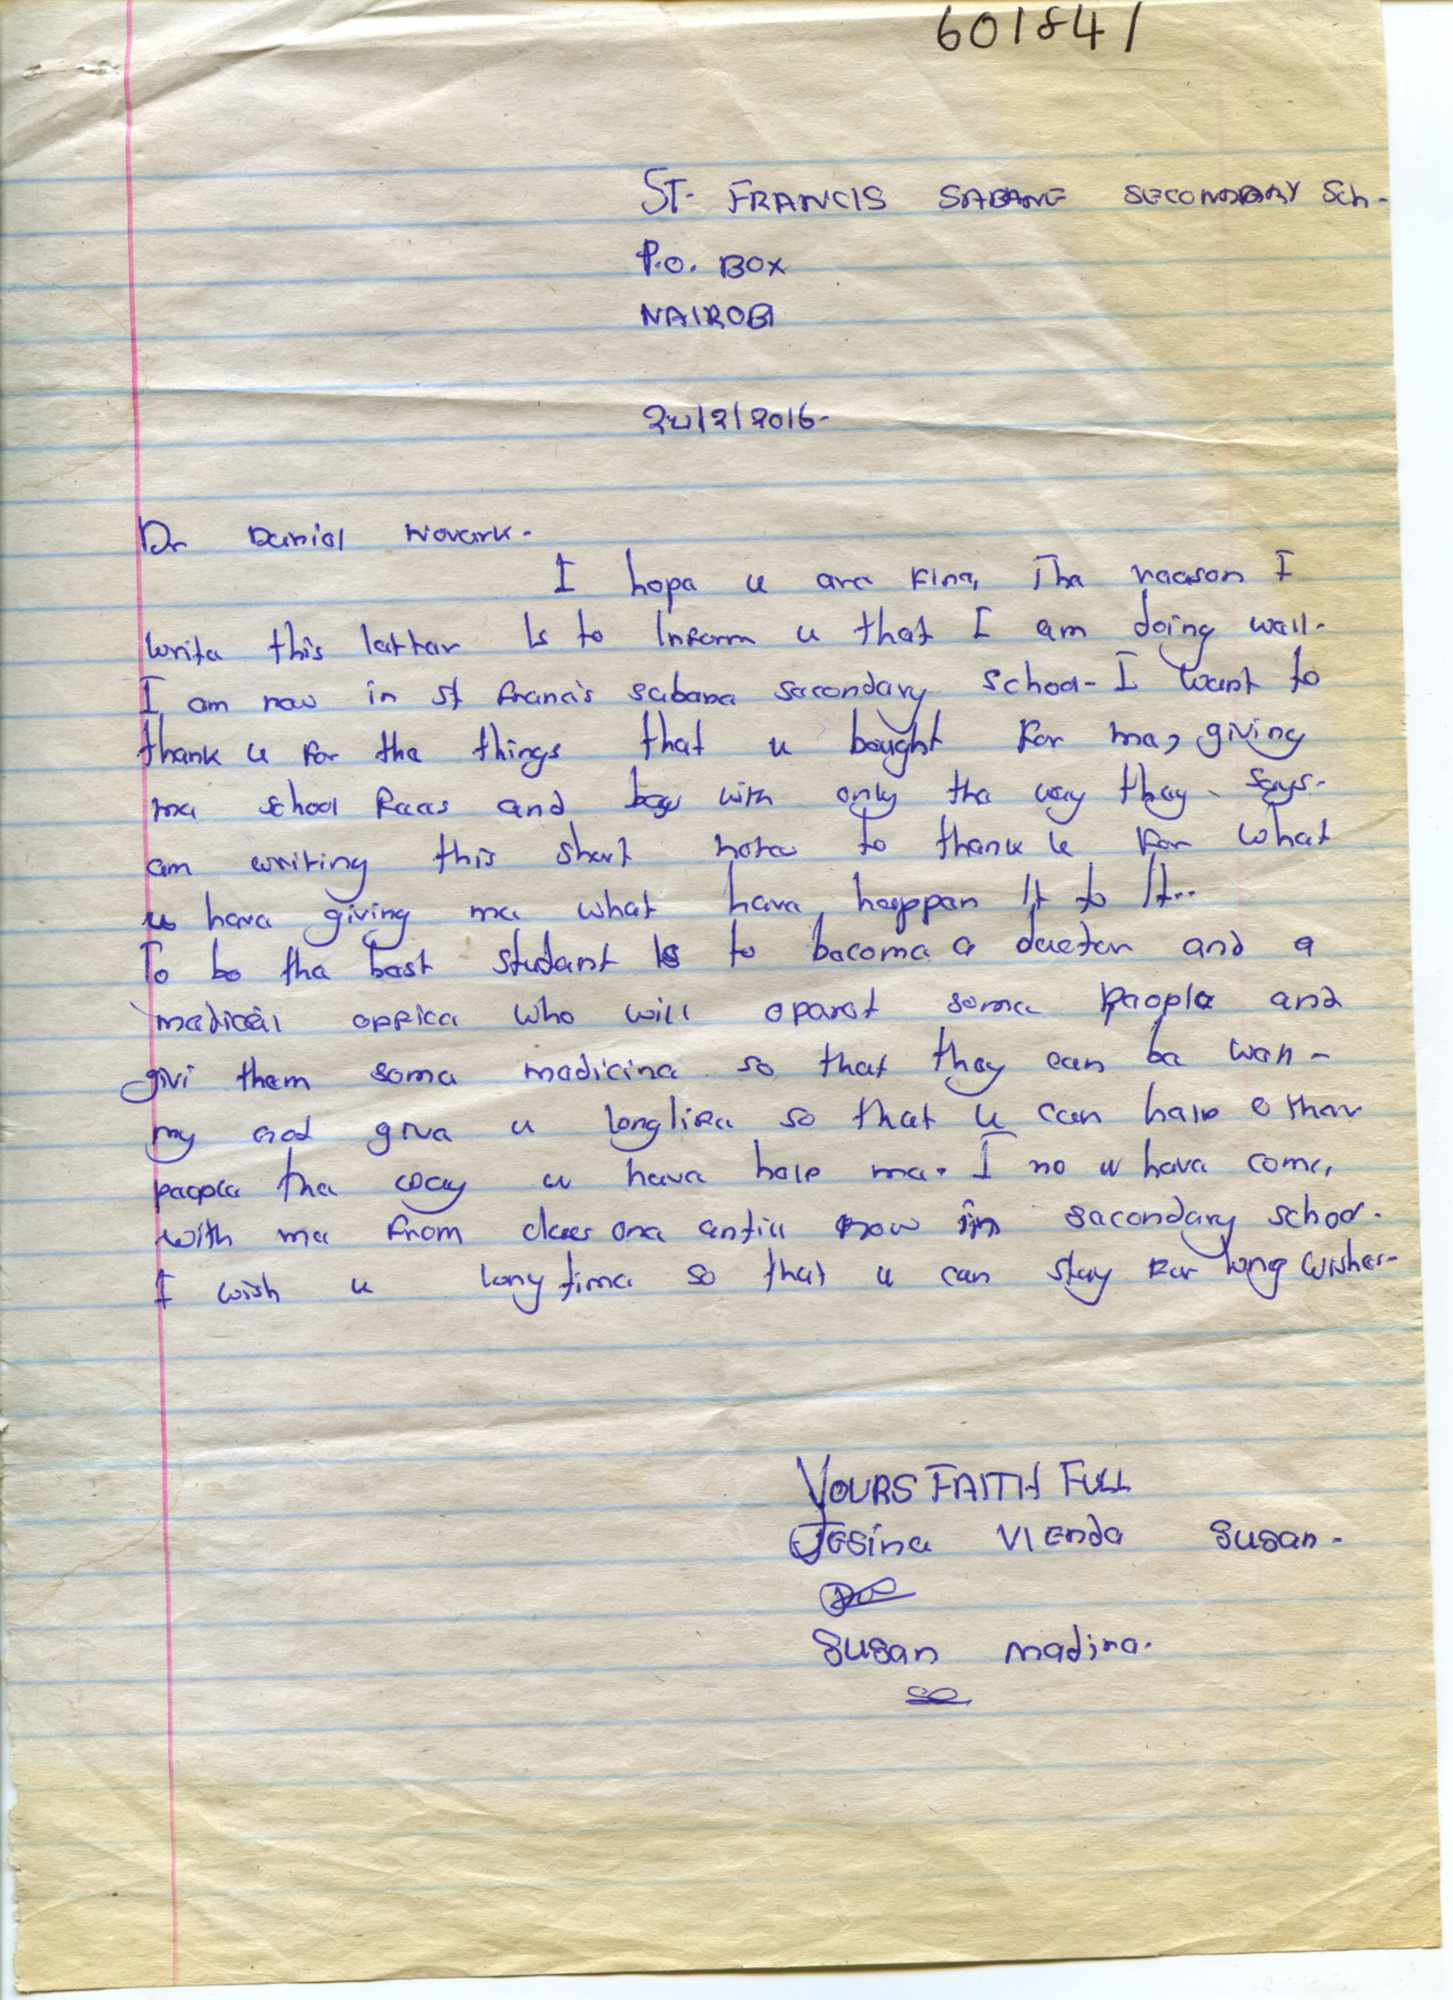 601841
ST. FRANCIS SABANE SECONDARY Sch.
P.O. BOX
NAIROBI
24/2/2016.
Dr Daniel Novark.
I hope u are Fine, The reason I
write this letter Is to Inform u that I am doing well.
I am now in st Francis sabana secondary school. I want to
thank u for the things that u bought for me, giving
me school Feees and with only the way they says.
am writing this short note to thank u for what
u have giving me what have happen It to It..
To be the best student Is to become a ductor and a
medical offica who will oparat some people and
givi them some medicine so that they can be well.
my God give u longlife so that u can help other
people the way u have help me. I no u have come,
with me from class one antill now in secondary school.
I wish u long time so that u can stay for long wishes.
YOURS FAITH FULL
Jesina Vienda Susan.
Susan madina.